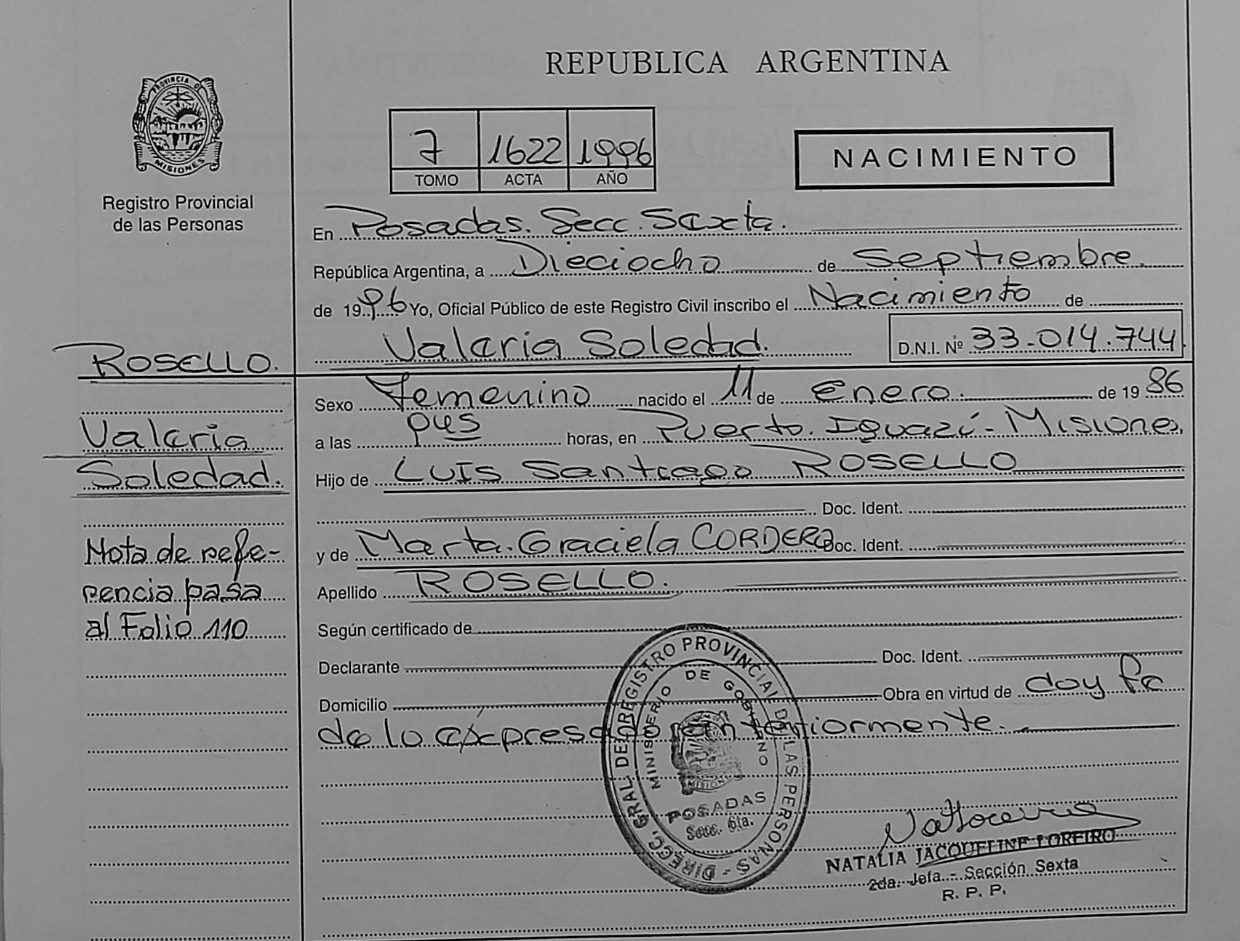 REPUBLICA ARGENTINA
PROVINCIA DE
MISIONES
Registro Provincial
de las Personas
7 1622 1996
TOMO ACTA AÑO
NACIMIENTO
En Posadas. Secc. Sexta.
República Argentina, a Dieciocho de Septiembre.
de 1996 Yo, Oficial Público de este Registro Civil inscribo el Nacimiento de
Valeria Soledad. D.N.I. Nº 33.014.744
ROSELLO.
Valeria
Soledad.
Nota de refe-
rencia pasa
al Folio 110
Sexo Femenino nacido el 11 de Enero. de 1986
a las horas, en Puerto. Iguazú - Misiones.
Hijo de LUIS Santiago ROSELLO
Doc. Ident.
y de Marta. Graciela CORDERO Doc. Ident.
Apellido ROSELLO.
Según certificado de
Declarante Doc. Ident.
Domicilio Obra en virtud de doy fe
de lo expresado anteriormente.
DIRECC. GRAL DE REGISTRO PROVINCIAL DE LAS PERSONAS -
MINISTERIO DE GOBIERNO
MISIONES
POSADAS
Secc. 6ta.
NATALIA JACQUELINE LOREIRO
2da. Jefa - Sección Sexta
R. P. P.